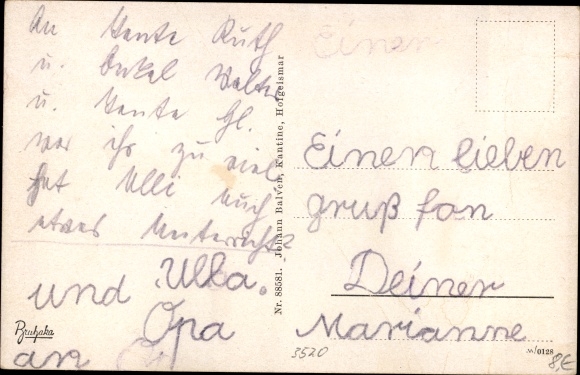 An Tante Ruth
u. Onkel Walter
u. Tante
war ihr zu viel
hat Ulli auch
etwas
Ulla.
und Opa
an
Bruhaka
Nr. 88581. Johann Balven, Kantine, Hofgeismar
Einen
Einen lieben
gruß fon
Deiner
Marianne
3520
M/0128
8,€